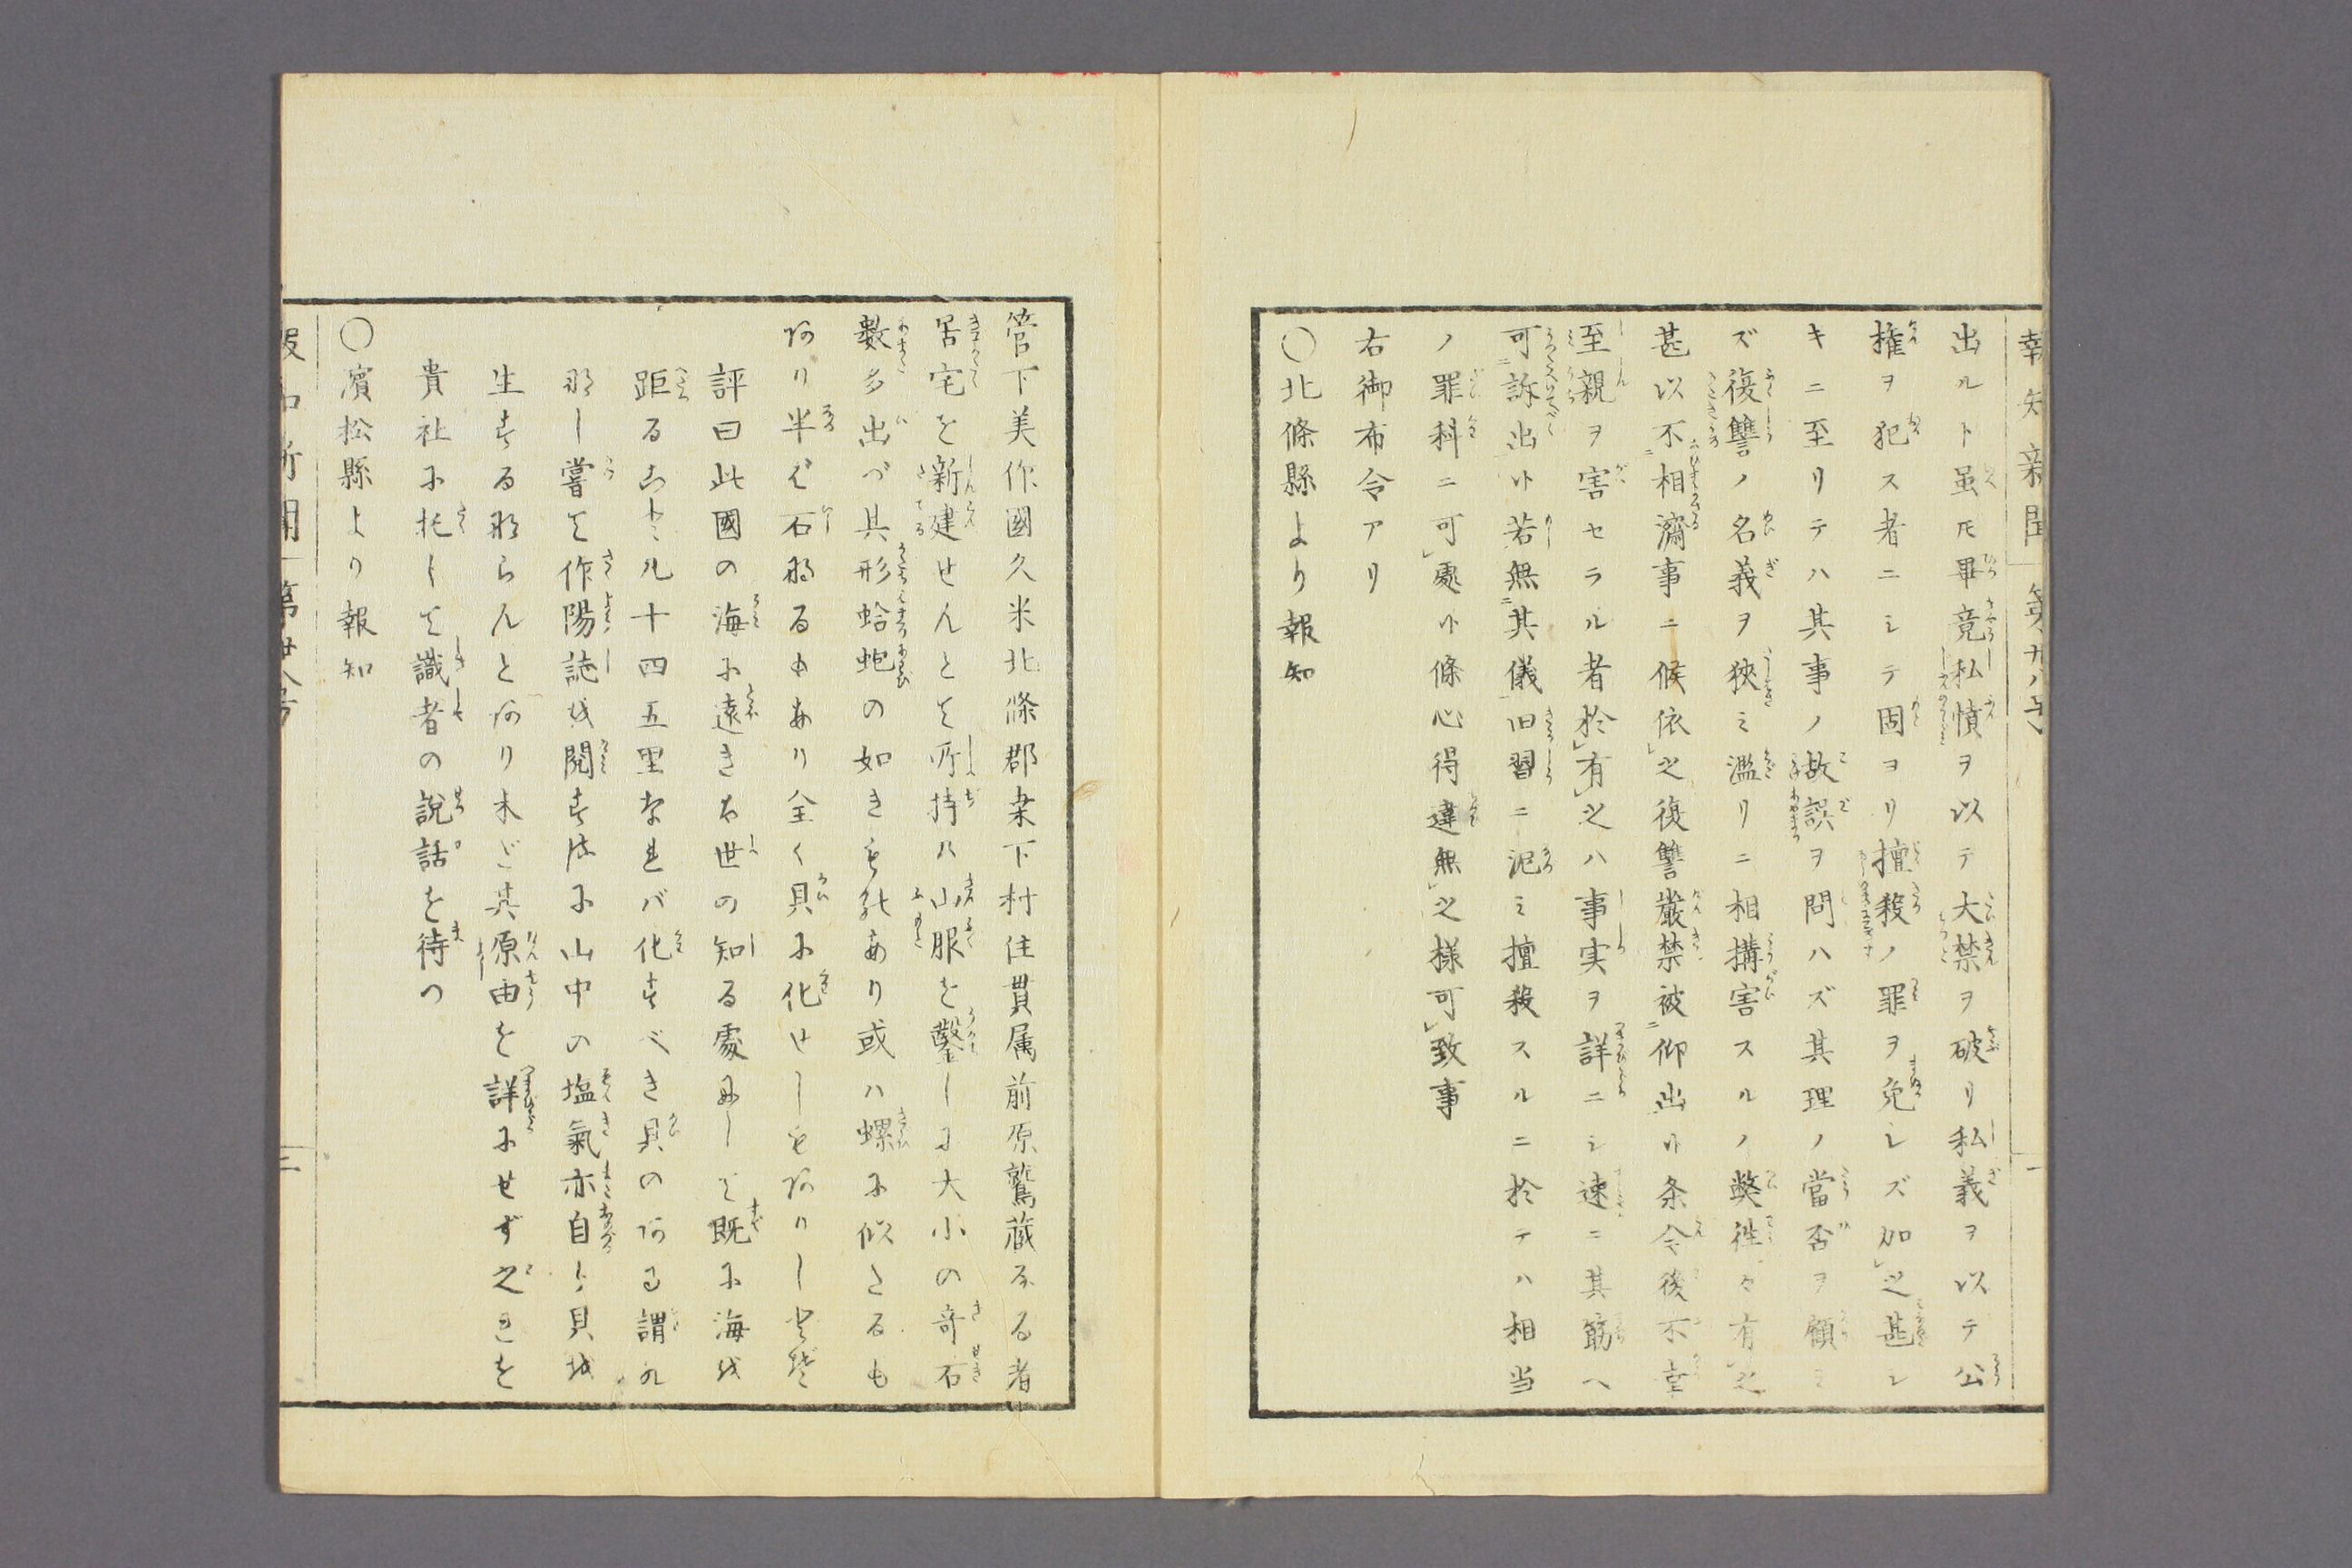 出ルト虽𪜈畢竟私憤ヲ以テ大禁ヲ破リ私義ヲ以テ公
権ヲ犯ス者ニシテ固ヨリ擅殺ノ罪ヲ免レズ加之甚シ
キニ至リテハ其事ノ故誤ヲ問ハズ其理ノ當否ヲ顧ミ
ズ復讐ノ名義ヲ狹ミ濫リニ相搆害スルノ獘徃々有之
甚以不相濟事ニ候依之復讐嚴禁被仰出候条今後不幸
至親ヲ害セラル者於有之ハ事実ヲ詳ニシ速ニ其筋ヘ
可訴出候若無其儀旧習ニ泥ミ擅殺スルニ於テハ相当
ノ罪科ニ可處候條心得違無之様可致事
右御布令アリ
〇北條縣より報知
管下美作國久米北條郡桒下村住貫属前原鷲蔵なる者
居宅を新建せんとて所持の山服を鑿しに大小の奇石
數多出づ其形蛤蚫の如きも乾あり或ハ螺に似たるも
あり半ば石なるもあり全く貝に化せしもありしと然
評曰此國の海に遠きハ世の知る處にして既に海を
距ること凡十四五里なれバ化すべき貝のある謂れ
なし嘗て作陽誌を閲するに山中の塩氣亦自ら貝を
生ずるならんとあり未だ其原由を詳にせず之れを
貴社に托して識者の説話を待つ
〇濱松縣より報知